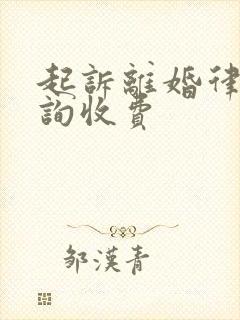 起訴離婚律
詢收費
鄒漢青